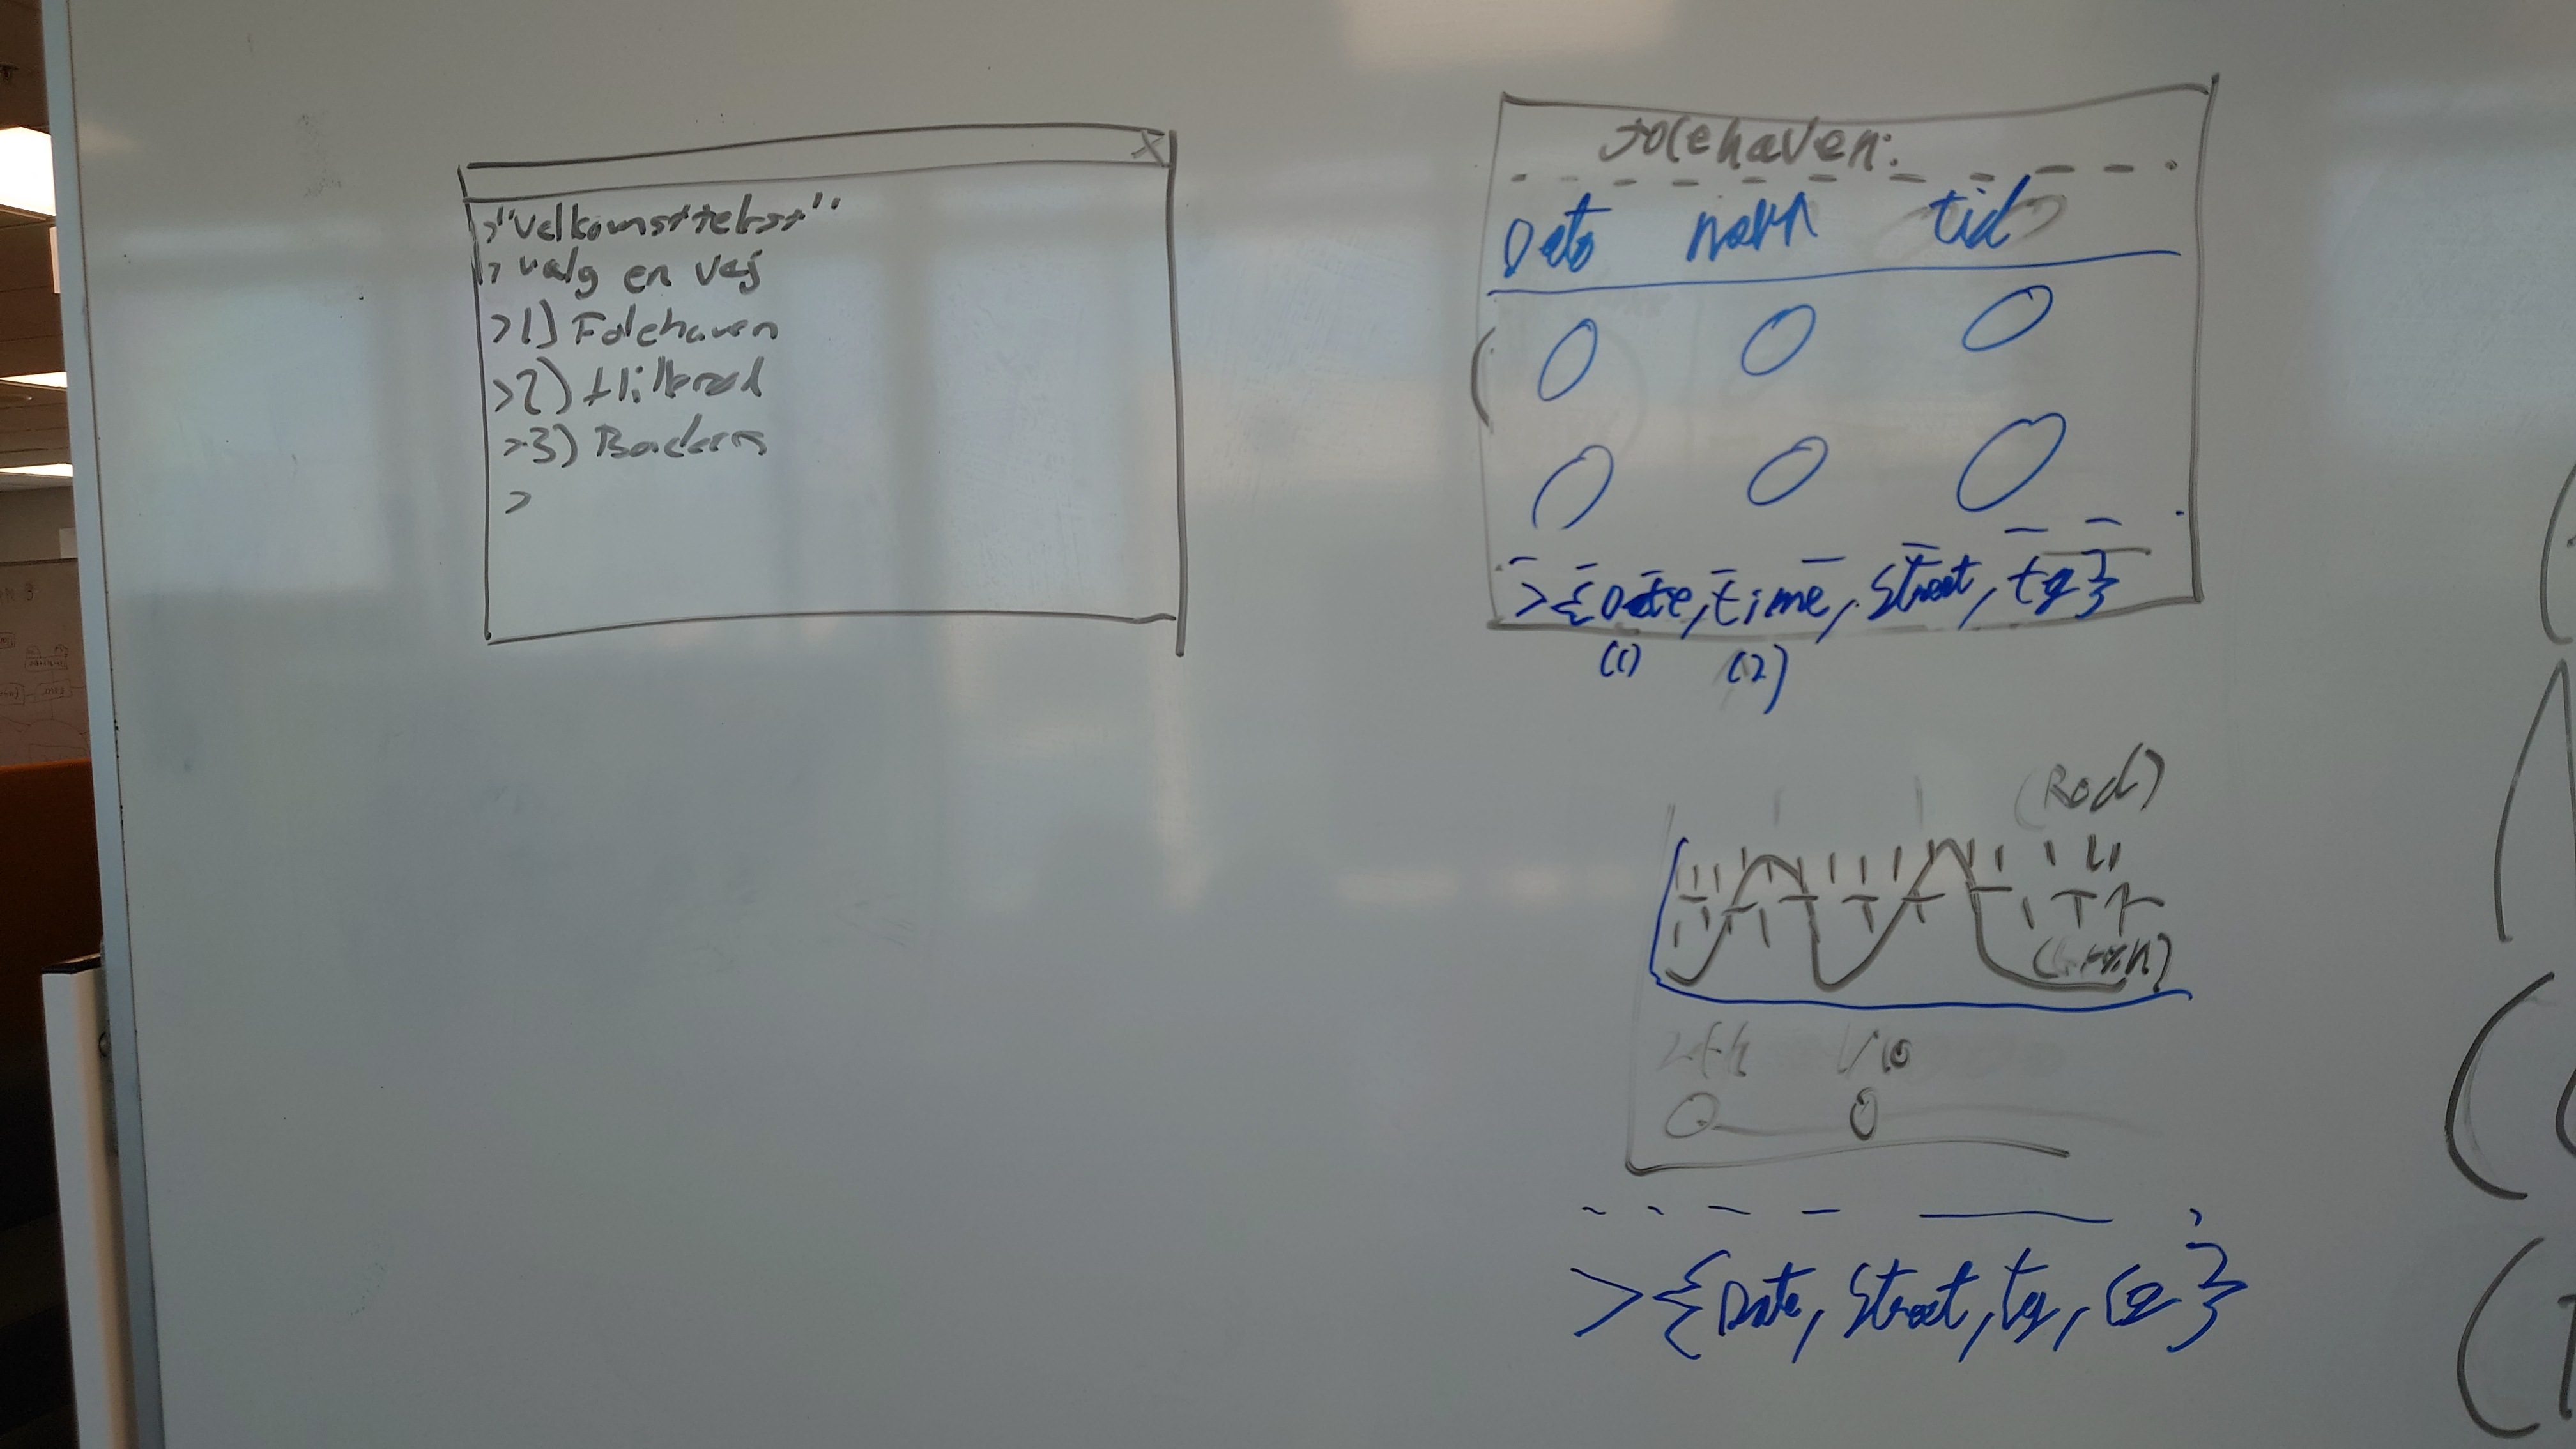 >"Velkomsttekst"
> Valg en vej
>1) Folehaven
>2) Hillerød
>3)
>
Folehaven:
Dato navn tid
>{Date, time, Street, tg}
(1) (2)
(Rød)
(Grøn)
>{Date, Street, tg,